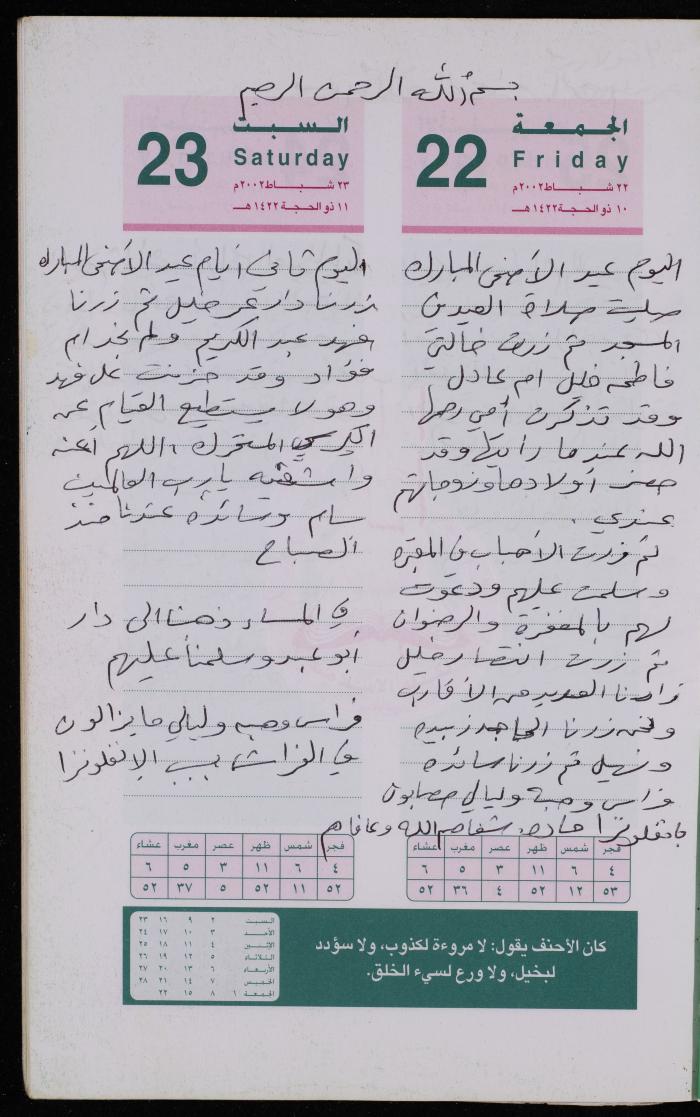 بسم الله الرحمن الرحيم
الجمعة
Friday
22
٢٢ شباط ٢٠٠٢م
١٠ ذو الحجة ١٤٢٢هـ
اليوم عيد الأضحى المبارك
صليت صلاة العيد في
المسجد ثم زرت خالتي
فاطمه خليل ام عادل
وقد تذكرت أمي رحمها
الله عندما رأيتها وقد
حضر أولادها وزوجاتهم
عندي .
ثم زرت الأحباب في المقبرة
وسلمت عليهم ودعوت
لهم بالمغفرة والرضوان
ثم زرت انتصار خليل
زارنا العديد من الأقارب
ونحن زرنا الحاجه زبيده
ونهيل ثم زرنا سائده
فراس وهبه وليالي مصابون
بانفلونزا حاده. شفاهم الله وعافاهم
السبت
Saturday
23
٢٣ شباط ٢٠٠٢م
١١ ذو الحجة ١٤٢٢هـ
اليوم ثاني أيام عيد الأضحى المبارك
زرنا دار عمر خليل ثم زرنا
فهد عبد الكريم ولم نجد ام
فؤاد وقد حزنت على فهد
وهو لا يستطيع القيام عن
الكرسي المتحرك ، اللهم أعنه
واشفيه يارب العالمين
سام وسائده عندنا منذ
الصباح
في المساء ذهبنا الى دار
أبو عبد وسلمنا عليهم
فراس وهبه وليالي ما يزالون
في الفراش بسبب الإنفلونزا
فجر شمس ظهر عصر مغرب عشاء
٤ ٦ ١١ ٣ ٥ ٦
٥٣ ١٢ ٥٢ ٤ ٣٦ ٥٢
فجر شمس ظهر عصر مغرب عشاء
٤ ٦ ١١ ٣ ٥ ٦
٥٢ ١١ ٥٢ ٥ ٣٧ ٥٢
كان الأحنف يقول: لا مروءة لكذوب، ولا سؤدد
لبخيل، ولا ورع لسيء الخلق.
السبت ٢ ٩ ١٦ ٢٣
الأحد ٣ ١٠ ١٧ ٢٤
الإثنين ٤ ١١ ١٨ ٢٥
الثلاثاء ٥ ١٢ ١٩ ٢٦
الأربعاء ٦ ١٣ ٢٠ ٢٧
الخميس ٧ ١٤ ٢١ ٢٨
الجمعة ١ ٨ ١٥ ٢٢